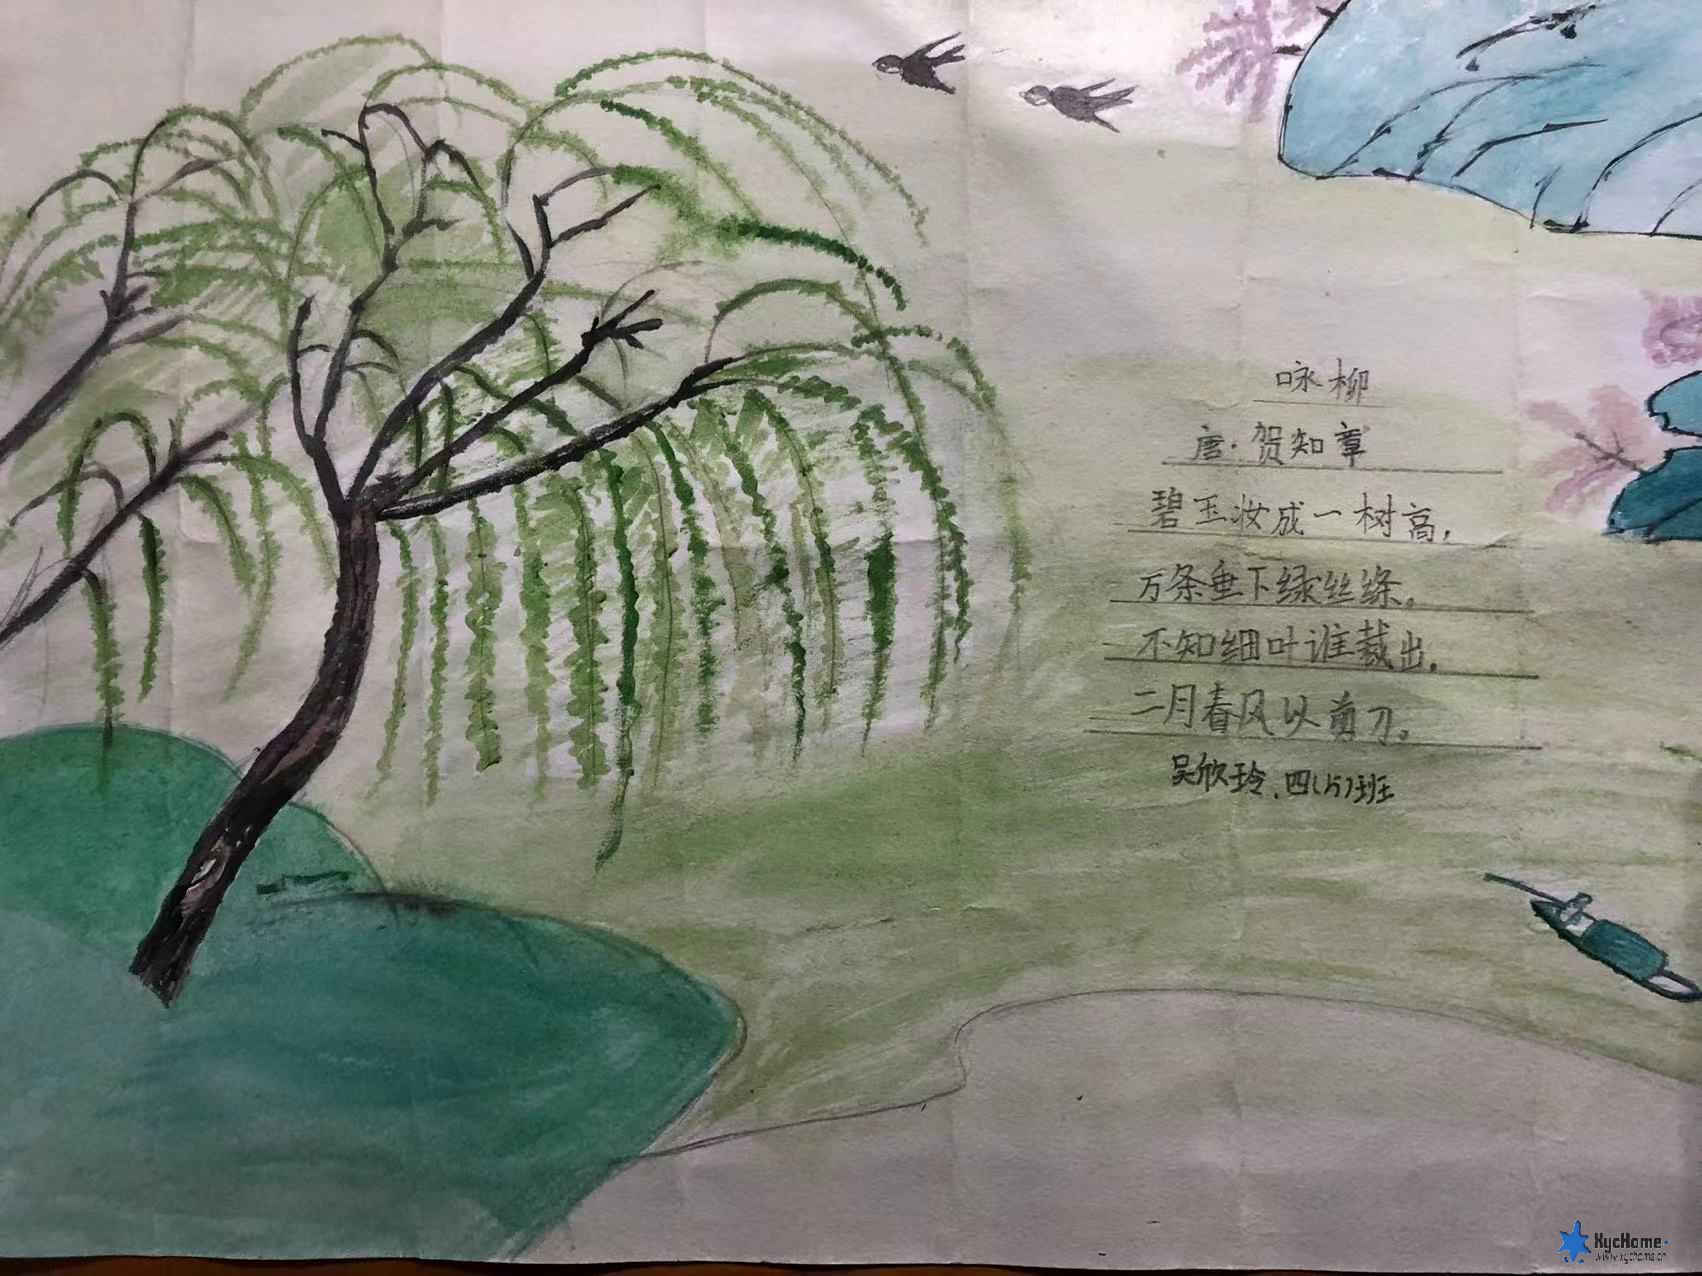 咏柳
唐·贺知章
碧玉妆成一树高，
万条垂下绿丝绦。
不知细叶谁裁出，
二月春风以剪刀。
吴欣玲.四(5)班
XycHome
www.xychome.cn